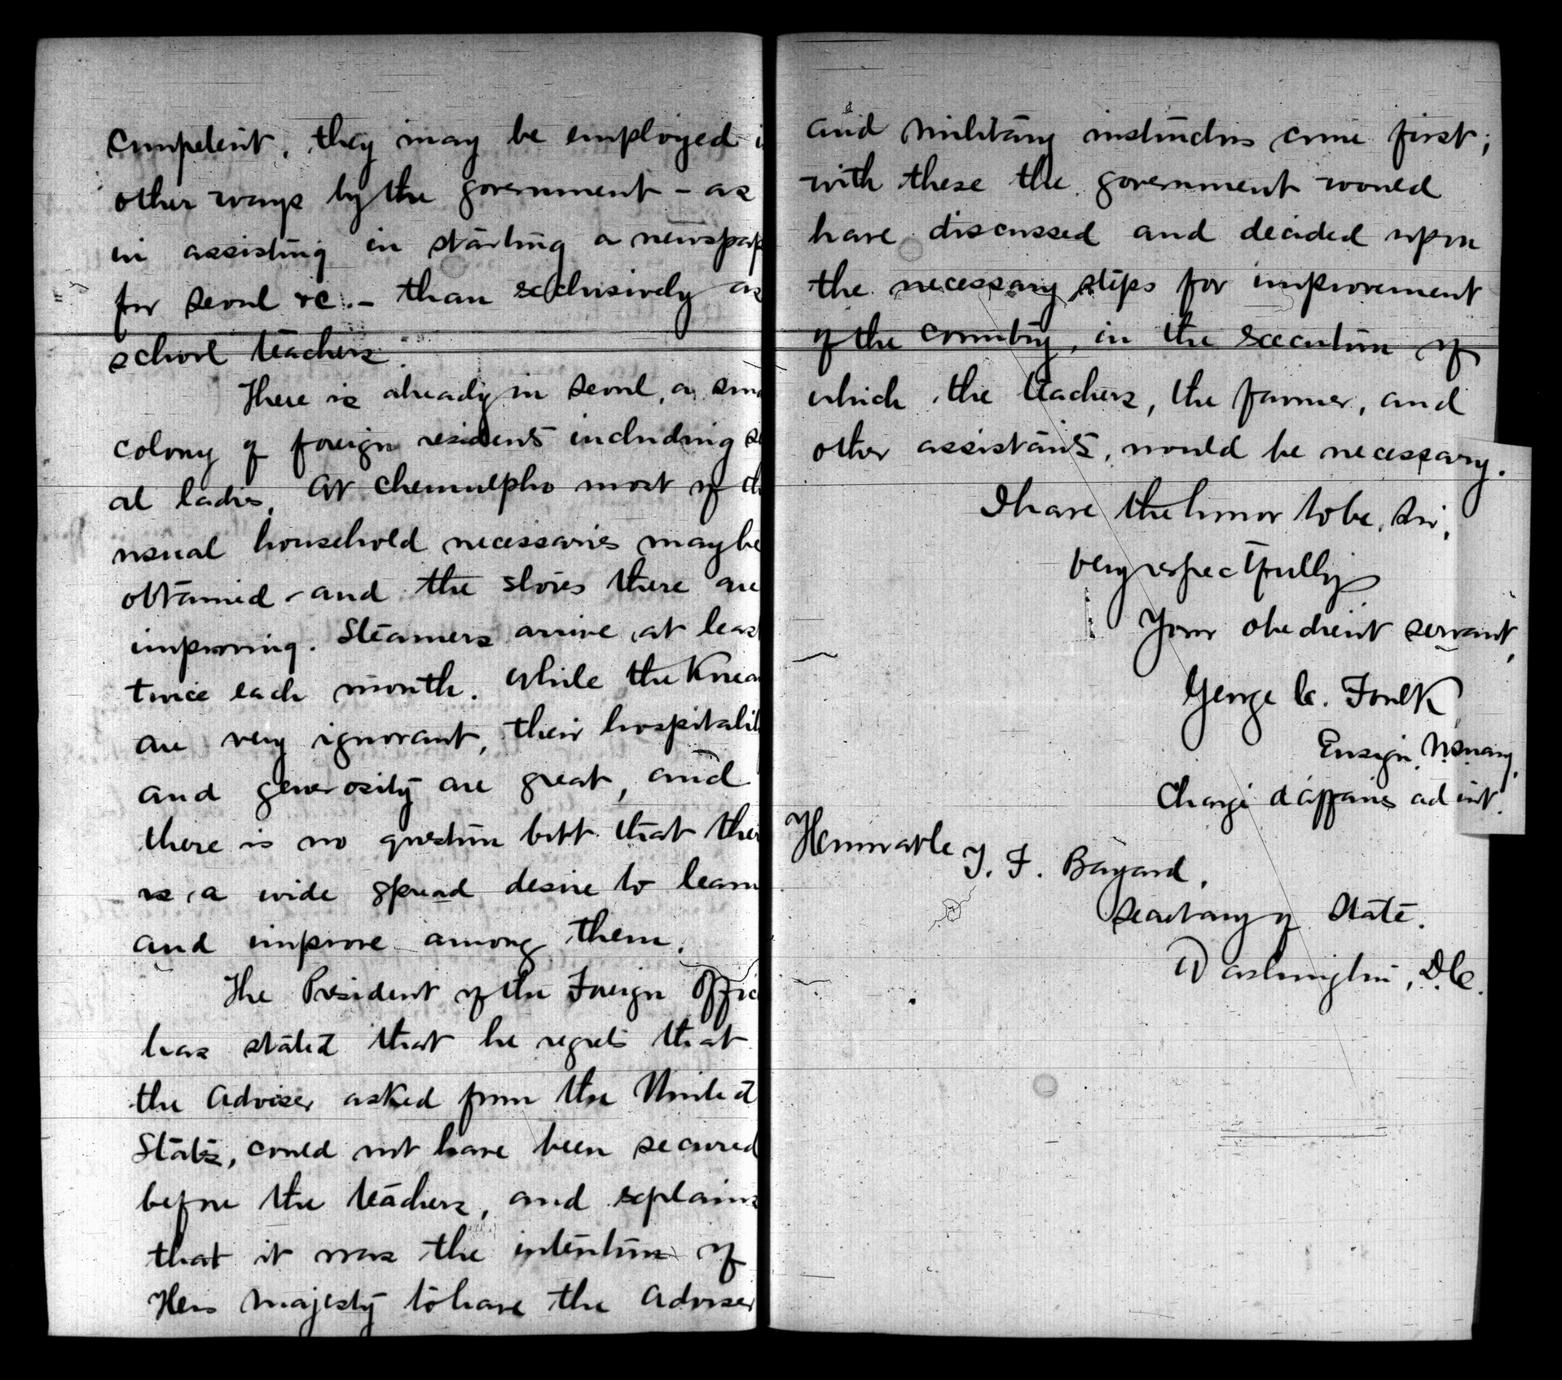 competent, they may be employed i
other ways by the government - as
in assisting in starting a newspap
for Seoul &c. - than exclusively as
school teachers.
There is already in Seoul, a sma
colony of foreign residents including s
al ladies. At Chemulpho most of th
usual household necessaries may be
obtained - and the stores there are
improving. Steamers arrive at leas
twice each month. While the Korea
are very ignorant, their hospitalit
and generosity are great, and
there is no question but that ther
is a wide spread desire to learn
and improve among them.
The President of the Foreign Offic
has stated that he regrets that
the Adviser asked from the United
States, could not have been secured
before the teachers, and explains
that it was the intention of
His Majesty to have the Adviser
and military instructors come first;
with these the government would
have discussed and decided upon
the necessary steps for improvement
of the country, in the execution of
which the teachers, the farmer, and
other assistants, would be necessary.
I have the honor to be, Sir,
very respectfully
Your obedient servant,
George C. Foulk
Ensign, U.S. Navy,
Chargé d'affaires ad int.
Honorable T. F. Bayard,
Secretary of State.
Washington, D.C.